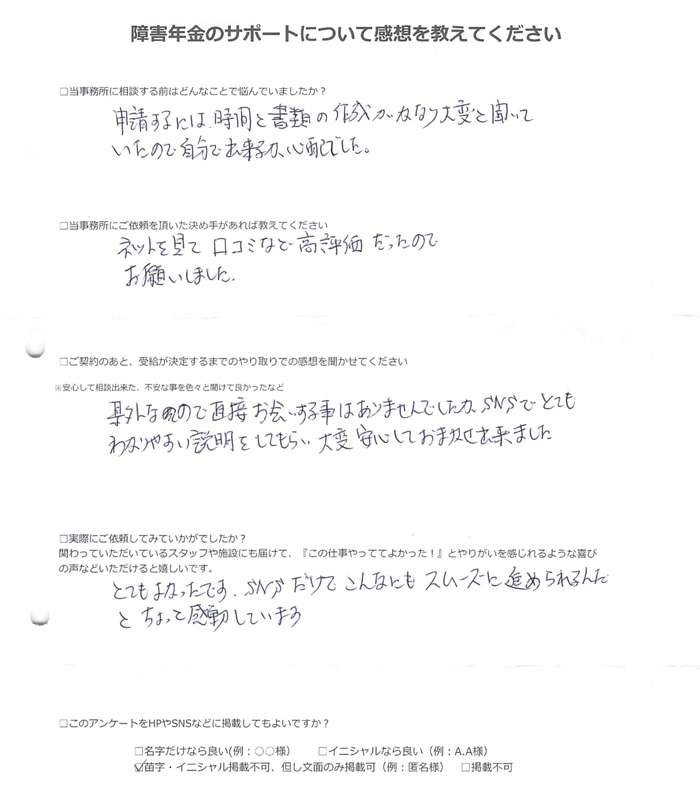 障害年金のサポートについて感想を教えてください
□当事務所に相談する前はどんなことで悩んでいましたか？
申請するには、時間と書類の作成がかなり大変と聞いて
いたので自分で出来るか、心配でした。
□当事務所にご依頼を頂いた決め手があれば教えてください
ネットを見て 口コミなどで高評価だったので
お願いしました。
□ご契約のあと、受給が決定するまでのやり取りでの感想を聞かせてください
※安心して相談出来た、不安な事を色々と聞けて良かったなど
県外なので直接お会いする事はありませんでしたが、SNSでとても
わかりやすい説明をしてもらい、大変安心しておまかせ出来ました
□実際にご依頼してみていかがでしたか？
関わっていただいているスタッフや施設にも届けて、『この仕事やっててよかった！』とやりがいを感じれるような喜び
の声などいただけると嬉しいです。
とてもよかったです。SNSだけでこんなにもスムーズに進められるんだ
と ちょっと感動しています
□このアンケートをHPやSNSなどに掲載してもよいですか？
□名字だけなら良い(例：○○様) □イニシャルなら良い（例：A.A様）
☑苗字・イニシャル掲載不可、但し文面のみ掲載可（例：匿名様） □掲載不可